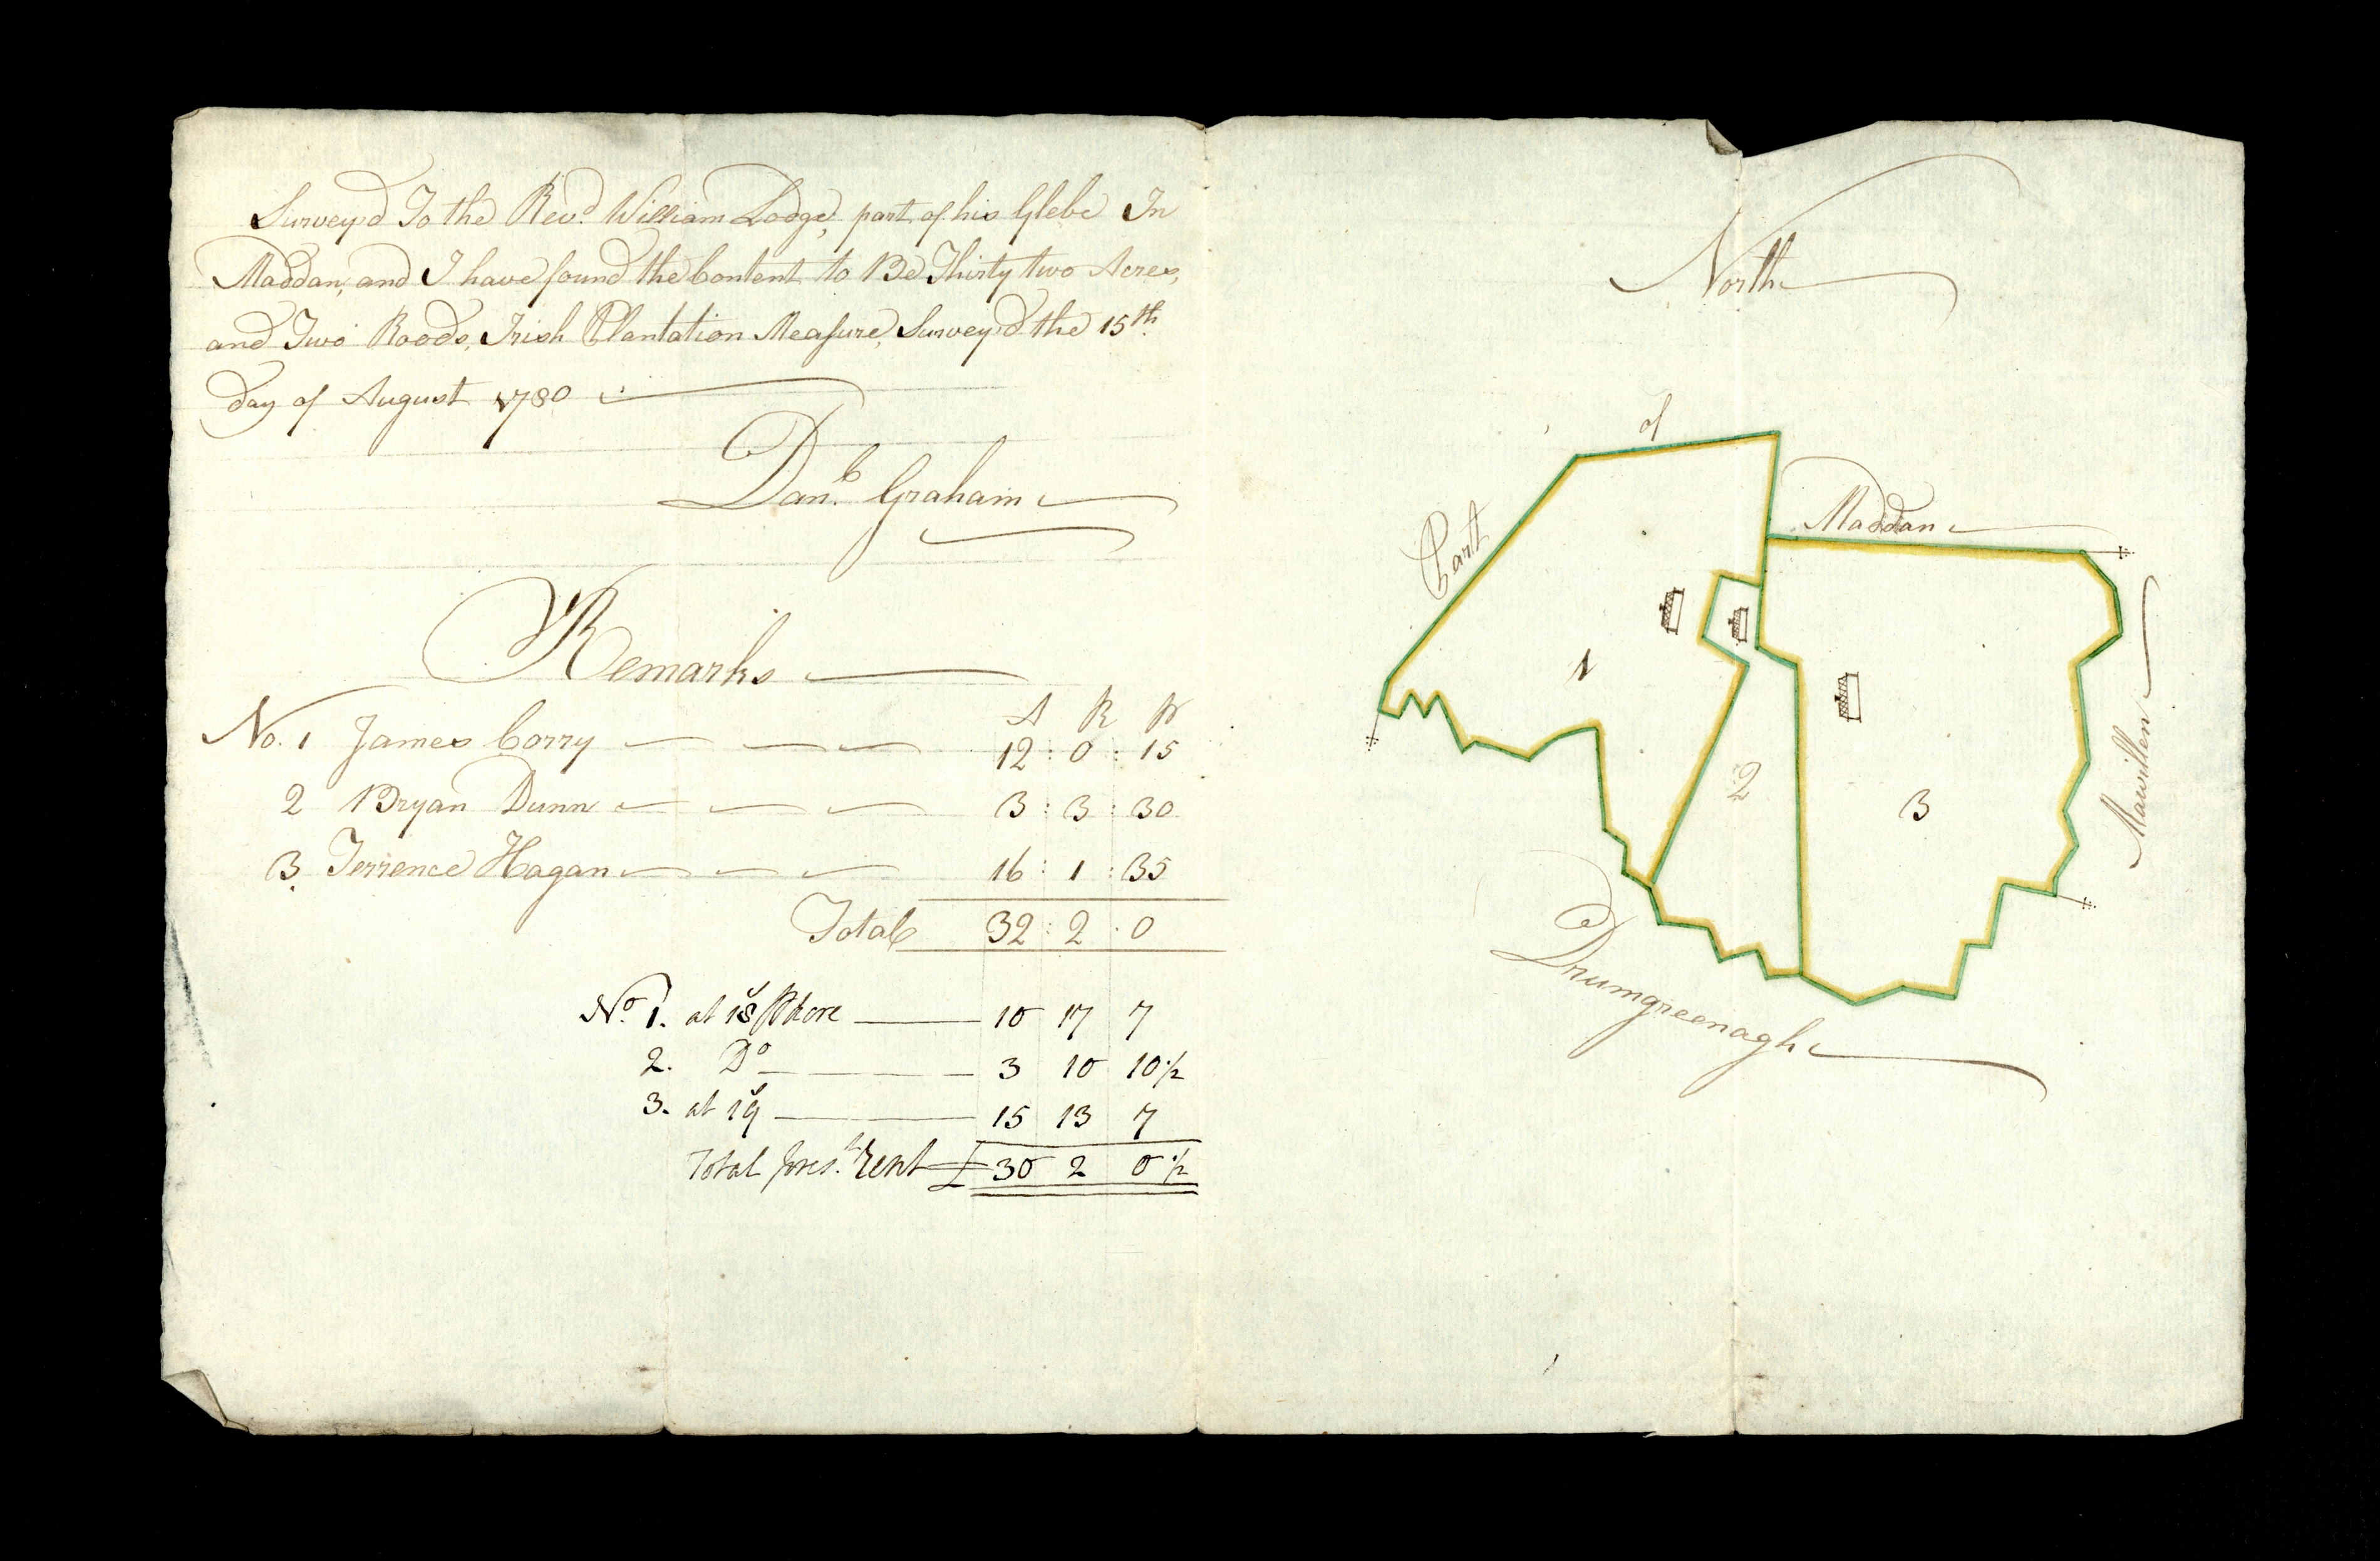 Survey'd To the Revd. William Lodge, part of his Glebe In
Maddan, and I have found the Content to Be Thirty two Acres,
and Two Roods, Irish Plantation Measure, Survey'd the 15th
day of August 1780
Danl. Graham
Remarks
A R P
No. 1 James Corry 12 : 0 : 15
2 Bryan Dunn 3 : 3 : 30
3 Terrence Hagan 16 : 1 : 35
Total 32 : 2 : 0
No. 1. at 18s P Acre 10 17 7
2. Do 3 10 10 1/2
3. at 19s 15 13 7
Total pres.t rent £ 30 2 0 1/2
North
Part of Maddan
1
2
3
Mawillen
Drumgreenagh